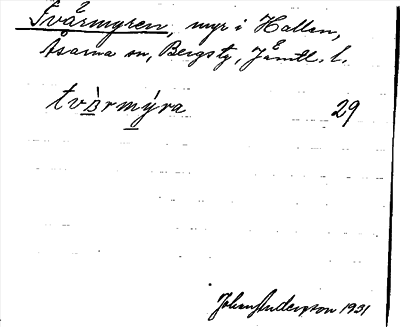 Tvärmyren, myr i Hallen,
Åsarna sn, Bergs tg, Jämtl. l.
tvàrmýra 29
Johan Anderson 1931